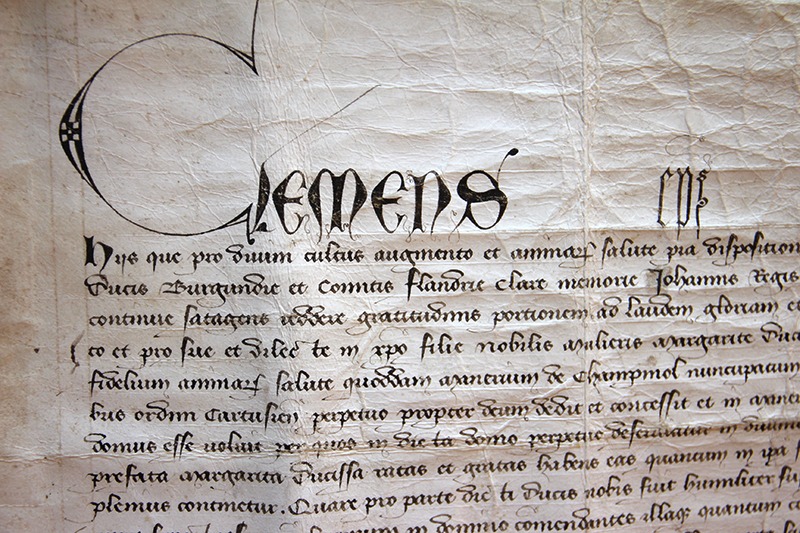 Clemens eps
Hiis que pro divini cultus augmento et animar salute pia disposition
Ducis Burgundie et Comitis Flandrie clare memorie Johannis Regis
continue satagens reddere gratitudinis portionem ad laudem gloriam et
to et pro sue et dilec te in xpo filie nobilis mulieris Margarite Duci
fidelium animar salute quoddam manerium de Champmol nuncupatum
bus ordin Cartusien perpetuo propter deum dedit et concessit et in maneri
domus esse voluit per quos in dic ta domo perpetue deserviatur in divinis
prefata Margarita Ducissa ratas et gratas habens eas quantum in ipa
plenius continetur. Quare pro parte dic ti Ducis nobis fuit humiliter su
in domino comendantes illaq quantum c